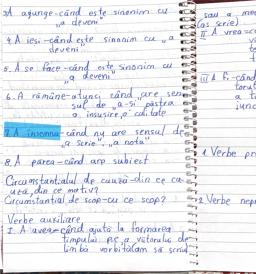 3. A ajunge-când este sinonim cu
"a deveni"
4. A ieși-când este sinonim cu "a
deveni"
5. A se face-când este sinonim cu
"a deveni"
6. A rămâne-atunci când are sen
sul de "a-și păstra
o însușire, o calitate
7. A însemna-când nu are sensul de
"a scrie", "a nota"
8. A părea-când are subiect
Circumstanțialul de cauză-din ce ca
uză, din ce motiv?
Circumstanțial de scop-cu ce scop?
Verbe auxiliare
I. A avea-când ajută la formarea
timpului p.c., a viitorului de
limbă vorbită: am să scriu
sau a
(as scrie)
II A vrea
III A fi-când
1. Verbe pr
2. Verbe nepr